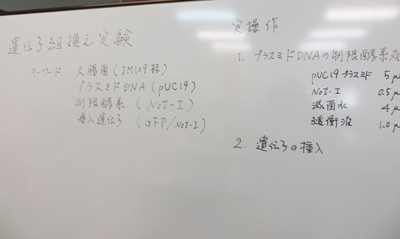 遺伝子組換え実験
キーワード 大腸菌 (JM109株)
プラスミドDNA (pUC19)
制限酵素 (NoT-I)
挿入遺伝子 (GFP/NoT-I)
実操作
1. プラスミドDNAの制限酵素処
pUC19プラスミド 5 μ
NoT-I 0.5 μ
滅菌水 4 μ
緩衝液 1.0 μ
2. 遺伝子の挿入